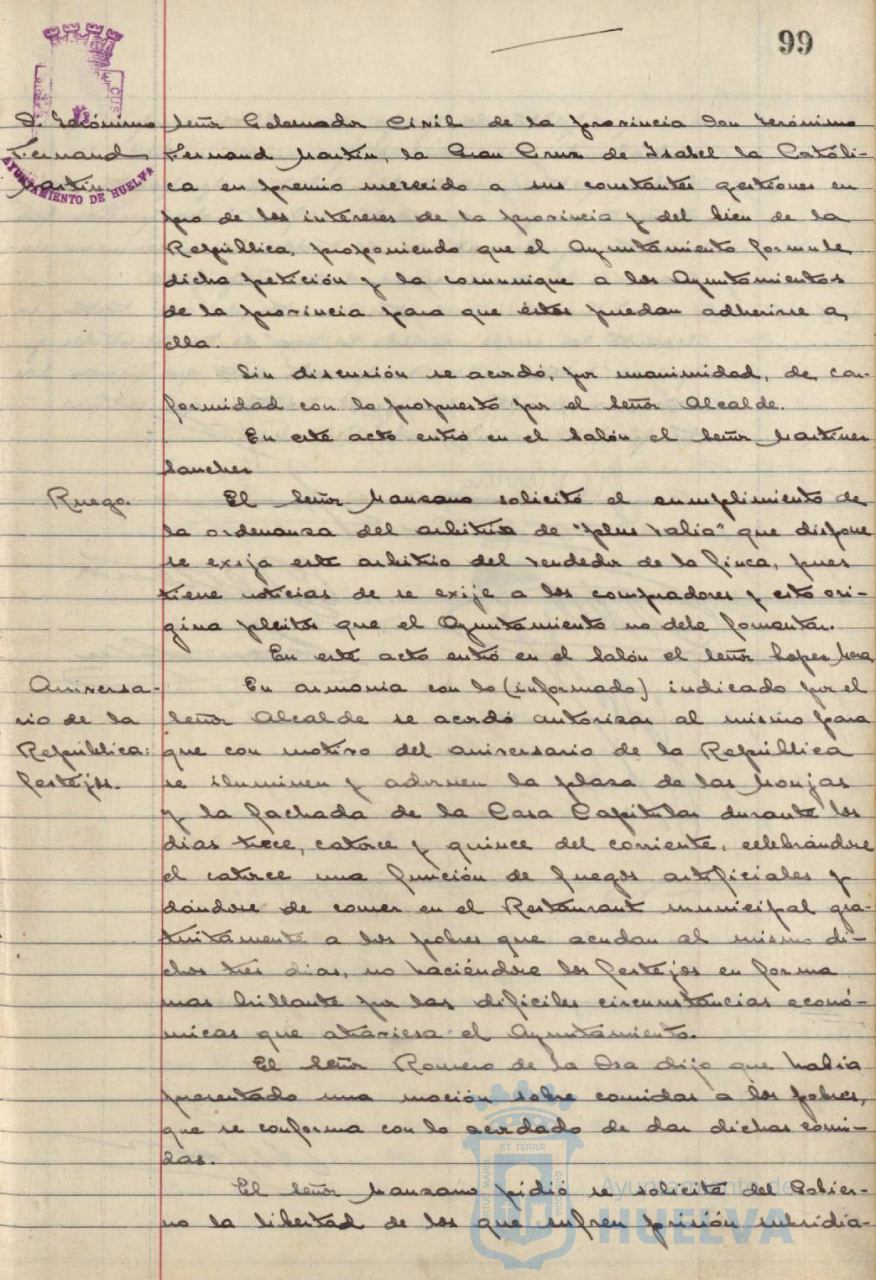 99
D. Gerónimo
Fernaud
Martín.
AYUNTAMIENTO DE HUELVA
señor Gobernador Civil de la provincia Don Gerónimo
Fernaud Martín, la Gran Cruz de Isabel la Católi-
ca en premio merecido a sus constantes gestiones en
pro de los intereses de la provincia y del bien de la
República, proponiendo que el Ayuntamiento formule
dicha petición y la comunique a los Ayuntamientos
de la provincia para que éstos puedan adherirse a
ella.
Sin discusión se acordó, por unanimidad, de con-
formidad con lo propuesto por el señor Alcalde.
En este acto entró en el salón el señor Martinez
Sanchez
Ruego.
El señor Manzano solicitó el cumplimiento de
la ordenanza del arbitrio de "plus valia" que dispone
se exija este arbitrio del vendedor de la finca, pues
tiene noticias de se exije a los compradores y esto ori-
gina pleitos que el Ayuntamiento no debe fomentar.
En este acto entró en el salón el señor Lopez
Aniversa-
rio de la
República:
festejos.
En armonia con lo (informado) indicado por el
señor Alcalde se acordó autorizar al mismo para
que con motivo del aniversario de la República
se iluminen y adornen la plaza de las Monjas
y la fachada de la Casa Capitular durante los
dias trece, catorce y quince del corriente, celebrándose
el catorce una función de fuegos artificiales y
dándose de comer en el Restaurant municipal gra-
tuitamente a los pobres que acudan al mismo di-
chos tres dias, no haciéndose los festejos en forma
mas brillante por las dificiles circunstancias econó-
micas que atraviesa el Ayuntamiento.
El señor Romero de la Osa dijo que habia
presentado una moción sobre comidas a los pobres,
que se conforma con lo acordado de dar dichas comi-
das.
El señor Manzano pidió se solicite del Gobier-
no la libertad de los que sufren prisión subsidia-
Ayuntamiento de
HUELVA